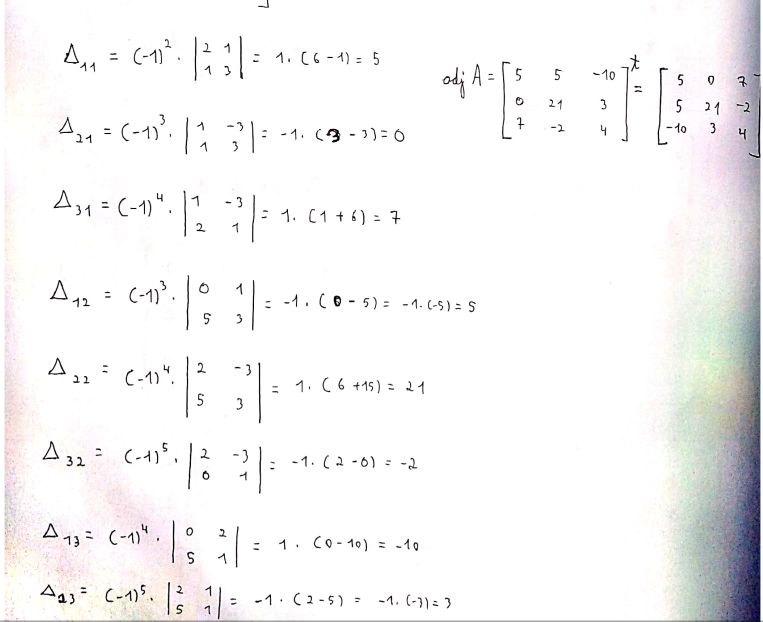 Δ₁₁ = (-1)². |2 1; 1 3| = 1. (6-1) = 5
adj A = [5 5 -10; 0 21 3; 7 -2 4]ᵗ = [5 0 7; 5 21 -2; -10 3 4]
Δ₂₁ = (-1)³. |1 -3; 1 3| = -1. (3-3) = 0
Δ₃₁ = (-1)⁴. |1 -3; 2 1| = 1. (1+6) = 7
Δ₁₂ = (-1)³. |0 1; 5 3| = -1. (0-5) = -1.(-5) = 5
Δ₂₂ = (-1)⁴. |2 -3; 5 3| = 1. (6+15) = 21
Δ₃₂ = (-1)⁵. |2 -3; 0 1| = -1. (2-0) = -2
Δ₁₃ = (-1)⁴. |0 2; 5 1| = 1. (0-10) = -10
Δ₂₃ = (-1)⁵. |2 1; 5 1| = -1. (2-5) = -1.(-3) = 3